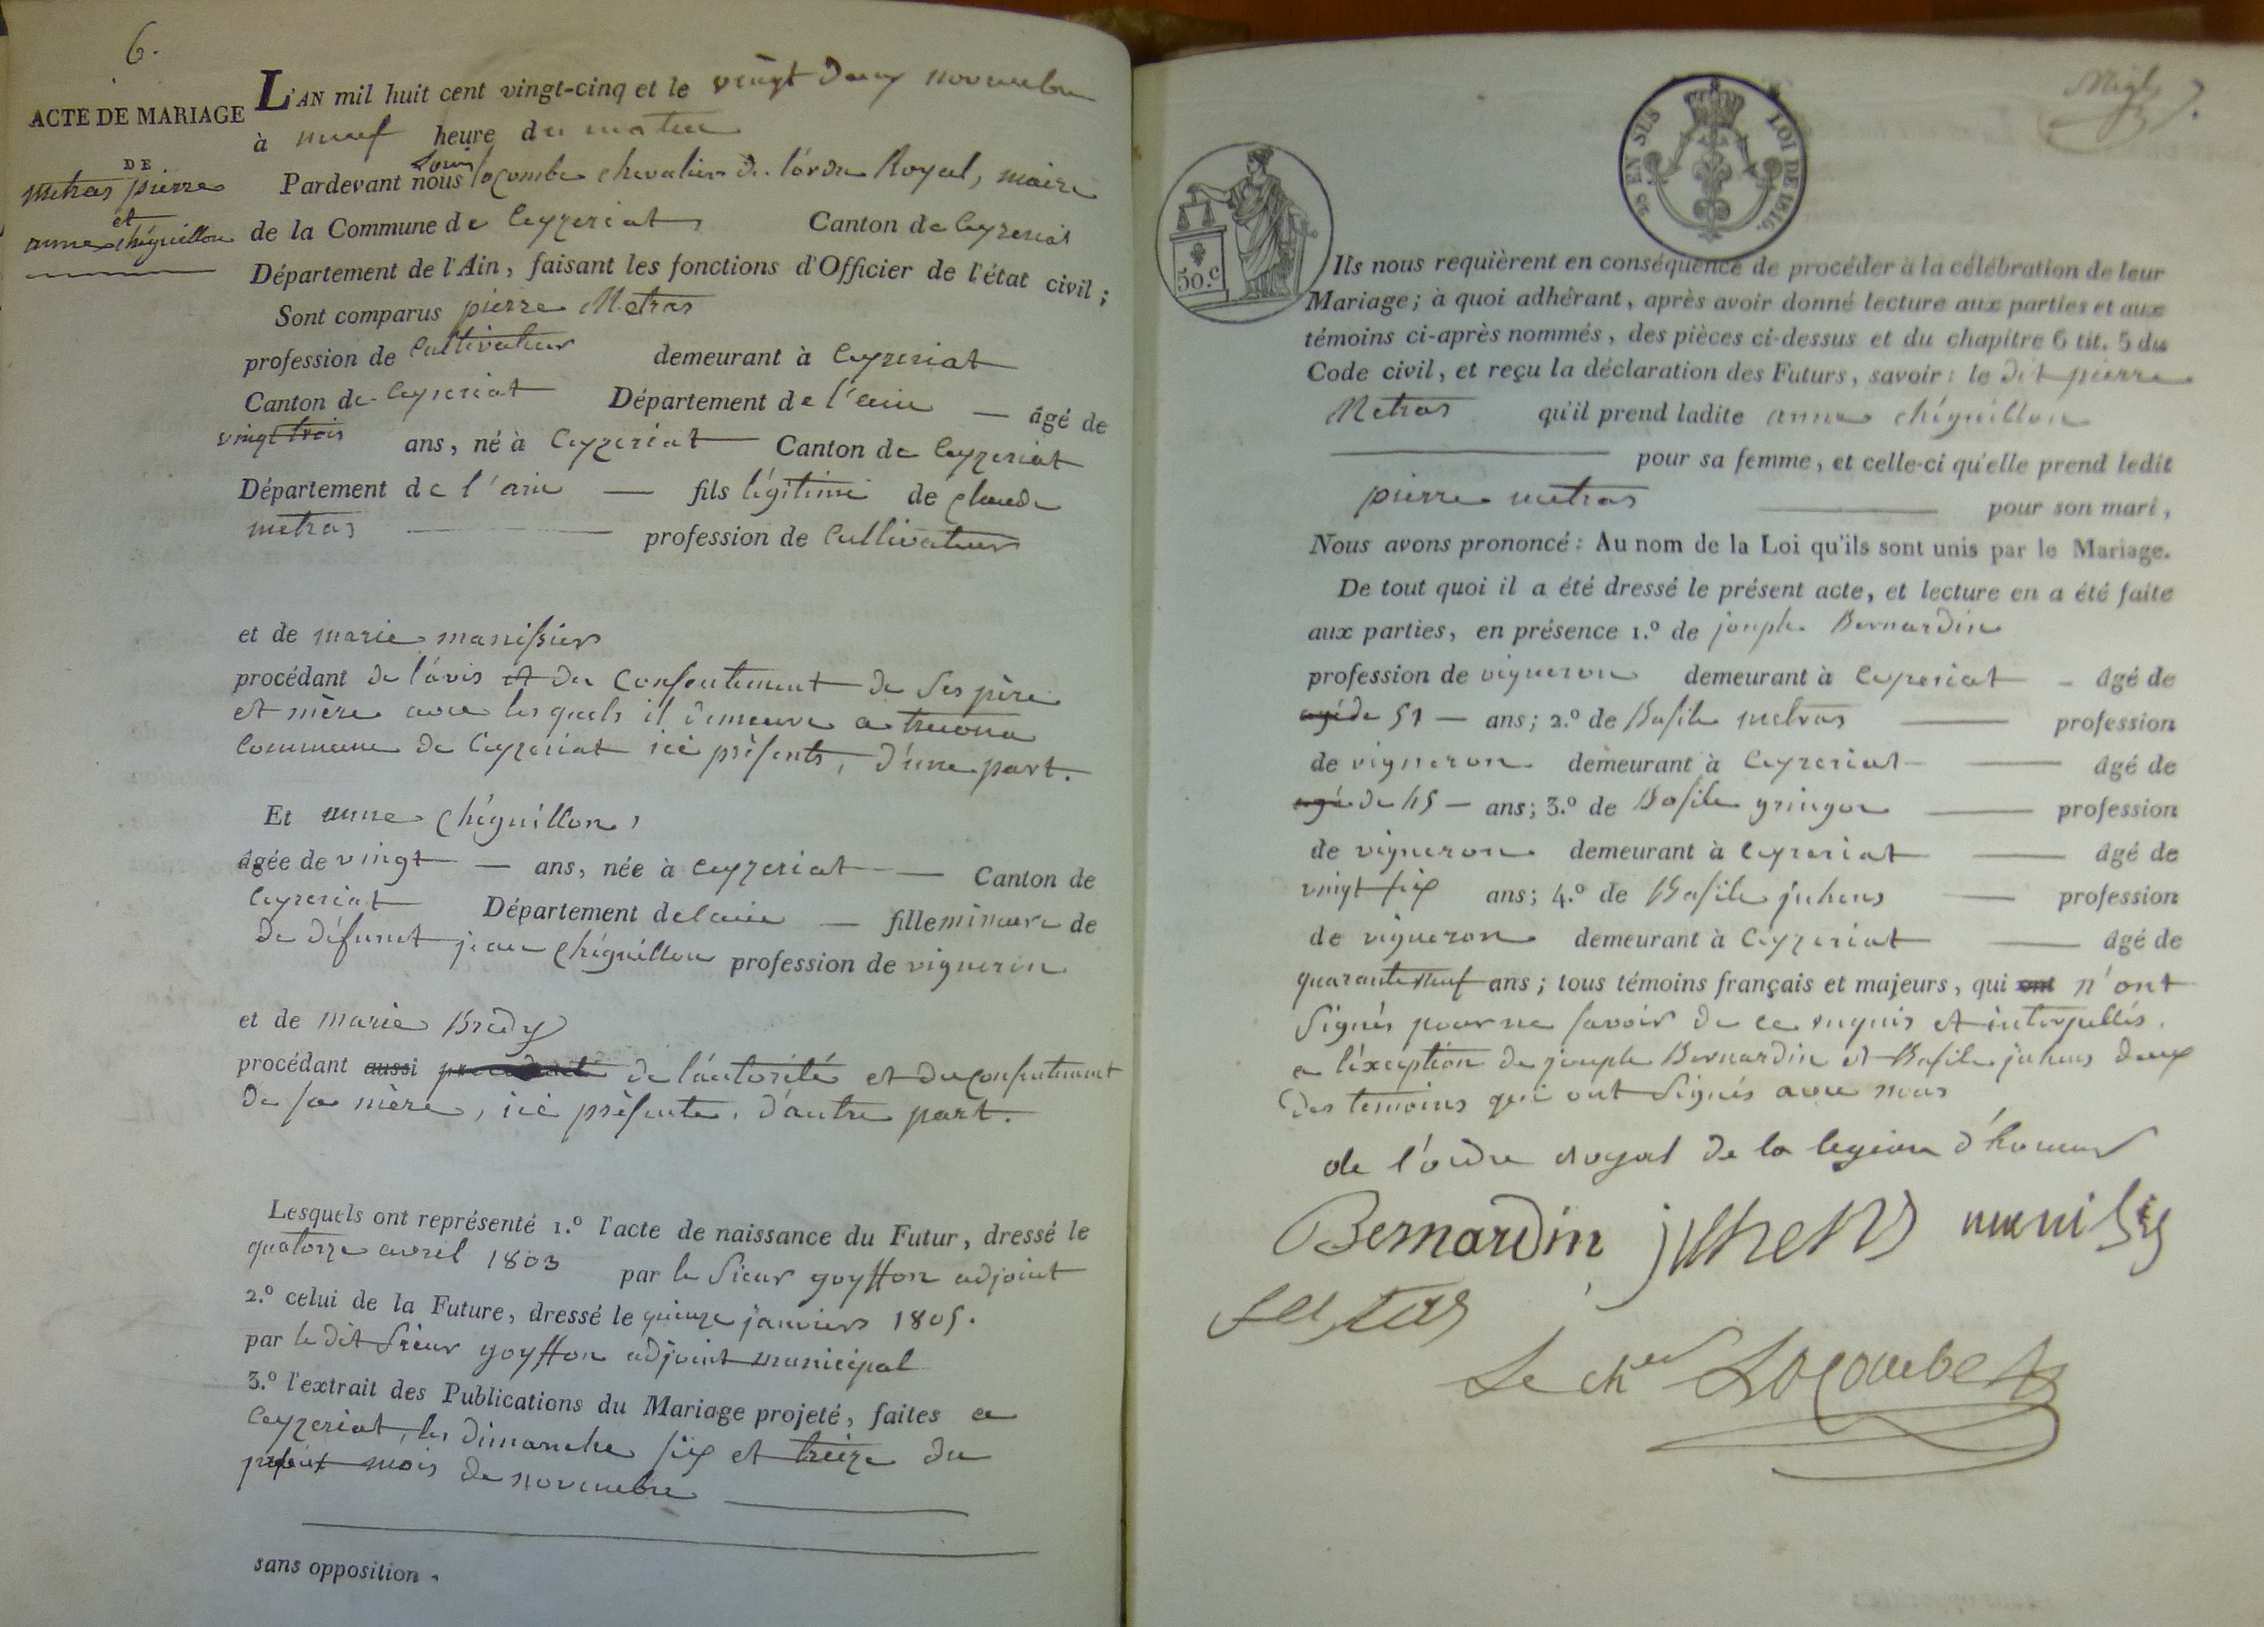 6.
L'AN mil huit cent vingt-cinq et le vingt deux novembre
à neuf heure du matin
ACTE DE MARIAGE
DE
metras pierre
et
anne chéguillon
Pardevant nous Louis locombe chevalier de l'ordre Royal, maire
de la Commune de Ceyzeriat Canton de Ceyzeriat
Département de l'Ain, faisant les fonctions d'Officier de l'état civil ;
Sont comparus pierre Metras
profession de Cultivateur demeurant à Ceyzeriat
Canton de Ceyzeriat Département de l'ain — âgé de
vingt trois ans, né à Ceyzeriat Canton de Ceyzeriat
Département de l'ain — fils légitime de claude
metras profession de Cultivateur
et de marie manissier
procédant de l'avis et du Consentement de ses père
et mère avec lesquels il demeure a
Commune de Ceyzeriat ici présents, d'une part.
Et anne chéguillon,
âgée de vingt — ans, née à ceyzeriat — Canton de
Ceyzeriat Département de lain — fille mineure de
de défunct jean chéguillon profession de vigneron
et de marie Bredy
procédant aussi de l'autorité et du consentement
de sa mère, ici présente, d'autre part.
Lesquels ont représenté 1.º l'acte de naissance du Futur, dressé le
quatorze avril 1803 par le sieur goyffon adjoint
2.º celui de la Future, dressé le quinze janvier 1805.
par le dit sieur goyffon adjoint municipal
3.º l'extrait des Publications du Mariage projeté, faites a
Ceyzeriat, les dimanche six et treize du
présent mois de novembre
sans opposition.
7.
5 C. EN SUS LOI DE 1816.
50.c
Ils nous requièrent en conséquence de procéder à la célébration de leur
Mariage; à quoi adhérant, après avoir donné lecture aux parties et aux
témoins ci-après nommés, des pièces ci-dessus et du chapitre 6 tit. 5 du
Code civil, et reçu la déclaration des Futurs, savoir : le dit pierre
Metras qu'il prend ladite anne chéguillon
pour sa femme, et celle-ci qu'elle prend ledit
pierre metras pour son mari,
Nous avons prononcé : Au nom de la Loi qu'ils sont unis par le Mariage.
De tout quoi il a été dressé le présent acte, et lecture en a été faite
aux parties, en présence 1.º de joseph Bernardin
profession de vigneron demeurant à Ceyzeriat — âgé de
agé de 51 — ans; 2.º de Basile metras profession
de vigneron demeurant à Ceyzeriat âgé de
agé de 45 — ans; 3.º de Basile gringoz profession
de vigneron demeurant à Ceyzeriat âgé de
vingt six ans; 4.º de Basile juhens profession
de vigneron demeurant à Ceyzeriat âgé de
quarante neuf ans ; tous témoins français et majeurs, qui ont n'ont
signés pour ne savoir de ce requis et interpellés,
a l'exception de joseph Bernardin et Basile juhens deux
des temoins qui ont signés avec nous
de l'ordre royal de la legion d'honneur
Bernardin juhens manisié
Le ch.er Locombe